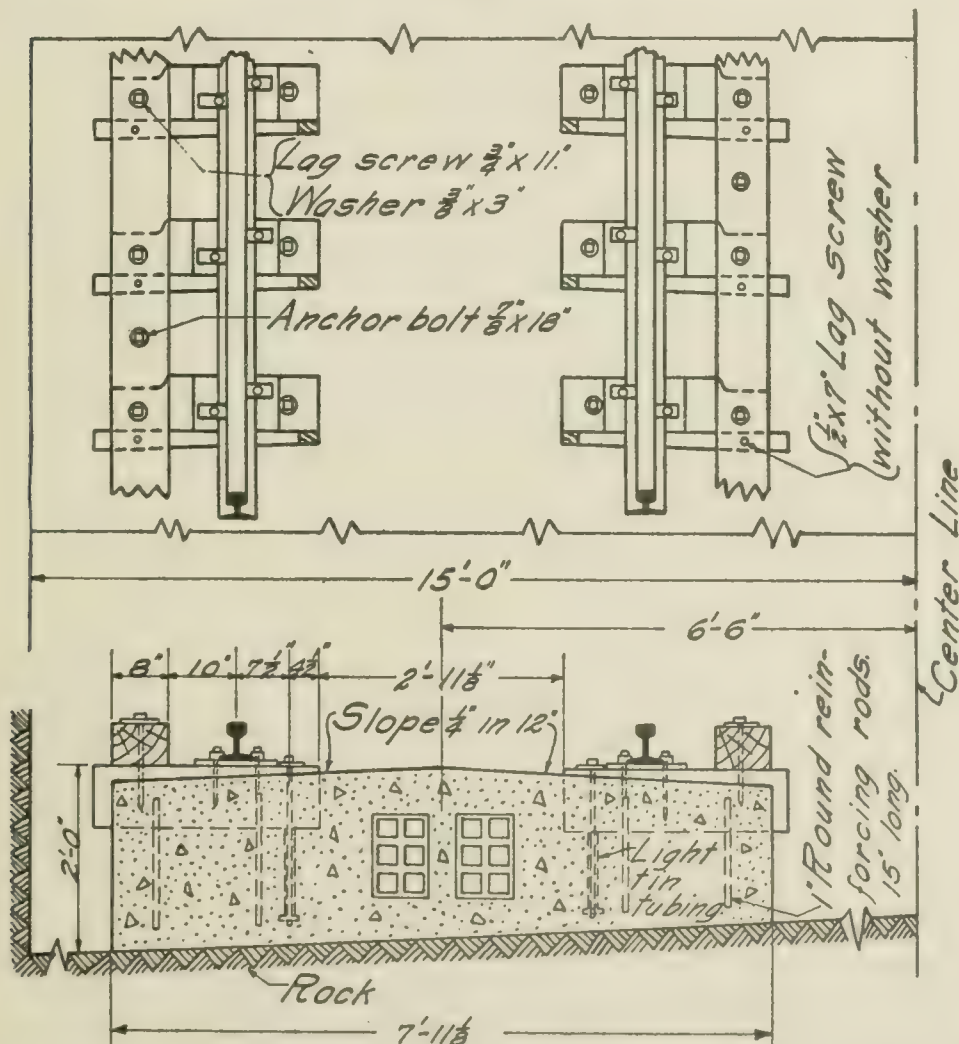 Lag screw 3/4" x 11"
Washer 3/8" x 3"
Anchor bolt 7/8" x 18"
1/2" x 7" Lag screw
without washer
Center Line
15'-0"
6'-6"
8"
10"
7 1/2"
4 1/2"
2'-11 1/8"
Slope 1/4" in 12"
2'-0"
Light
tin
tubing
1" Round rein-
forcing rods.
15' long.
Rock
7'-11 1/8"